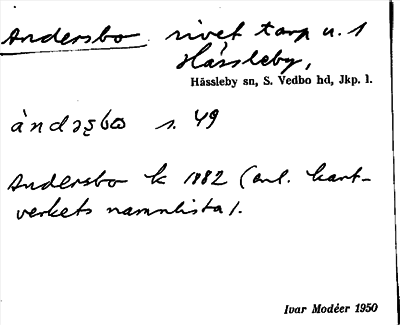 Andersbo rivet torp u. 1
Hässleby,
Hässleby sn, S. Vedbo hd, Jkp. l.
àndəʂbω s. 49
Andersbo k 1882 (enl. kart-
verkets namnlista).
Ivar Modéer 1950